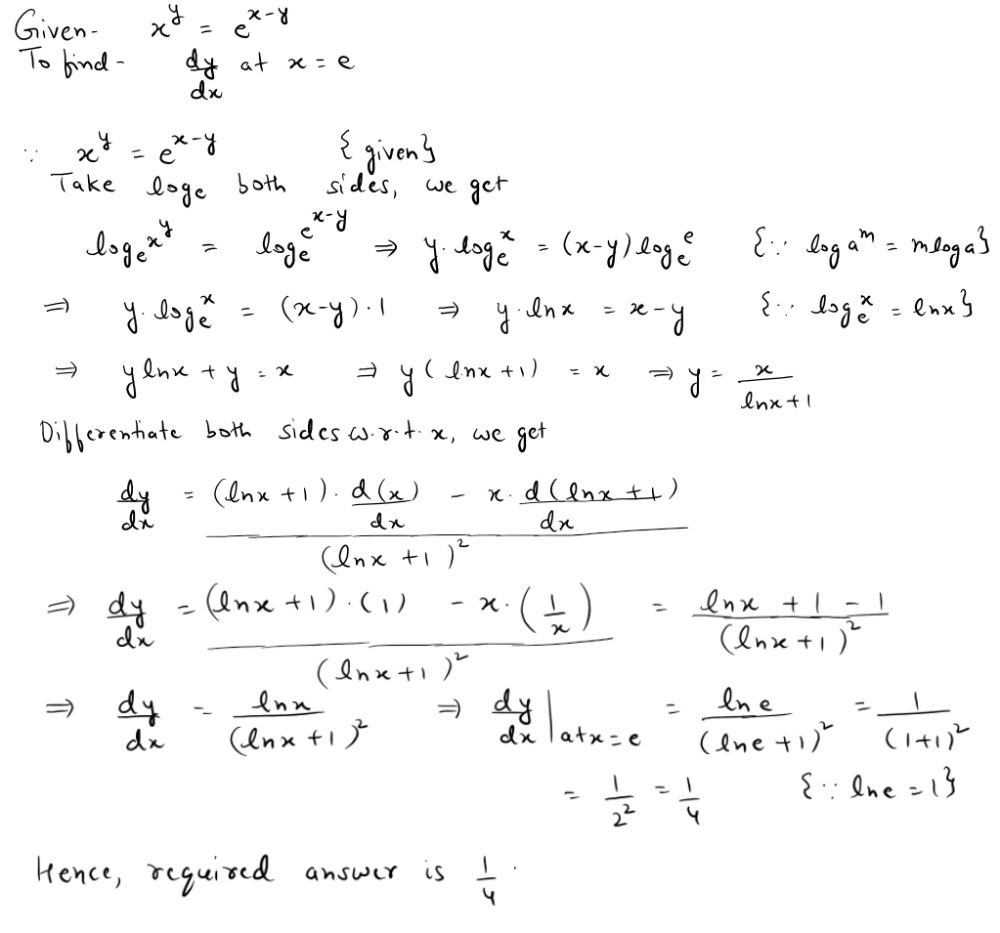 Given- x^y = e^(x-y)
To find- dy/dx at x = e
∵ x^y = e^(x-y) {given}
Take loge both sides, we get
log_e x^y = log_e e^(x-y) ⇒ y·log_e x = (x-y) log_e e {∵ log a^m = m log a}
⇒ y·log_e x = (x-y)·1 ⇒ y·lnx = x-y {∵ log_e x = lnx}
⇒ ylnx + y = x ⇒ y(lnx+1) = x ⇒ y = x/(lnx+1)
Differentiate both sides w.r.t. x, we get
dy/dx = ((lnx+1)·d(x)/dx - x·d(lnx+1)/dx)/(lnx+1)^2
⇒ dy/dx = ((lnx+1)·(1) - x·(1/x))/(lnx+1)^2 = (lnx+1-1)/(lnx+1)^2
⇒ dy/dx = lnx/(lnx+1)^2 ⇒ dy/dx | at x=e = lne/(lne+1)^2 = 1/(1+1)^2
= 1/2^2 = 1/4 {∵ lne = 1}
Hence, required answer is 1/4.